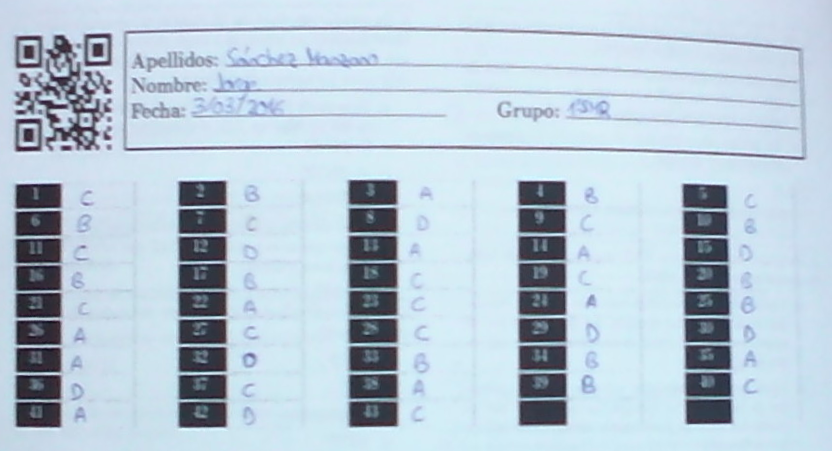 Apellidos: Sánchez Manzano
Nombre: Jorge
Fecha: 3/03/2016 Grupo: 1SMR
1 C 2 B 3 A 4 B 5 C
6 B 7 C 8 D 9 C 10 B
11 C 12 D 13 A 14 A 15 D
16 B 17 B 18 C 19 C 20 B
21 C 22 A 23 C 24 A 25 B
26 A 27 C 28 C 29 D 30 D
31 A 32 D 33 B 34 B 35 A
36 D 37 C 38 A 39 B 40 C
41 A 42 D 43 C